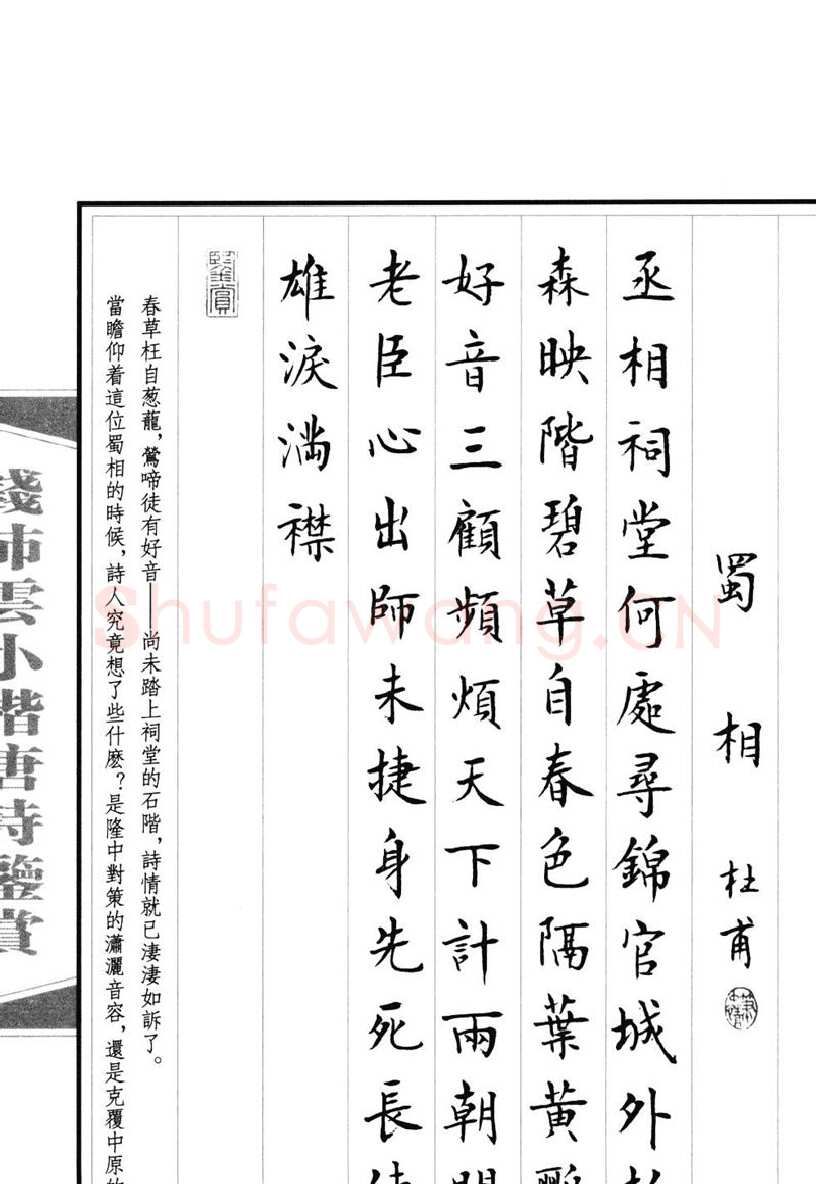 蜀相
杜甫
丞相祠堂何處尋錦官城外
森映階碧草自春色隔葉黃鸝
好音三顧頻煩天下計兩朝開
老臣心出師未捷身先死長使
雄淚滿襟
鑒賞
春草枉自葱蘢，鶯啼徒有好音——尚未踏上祠堂的石階，詩情就已淒淒如訴了。
當瞻仰着這位蜀相的時候，詩人究竟想了些什麽？是隆中對策的瀟灑音容，還是克覆中原的
錢沛雲小楷唐詩鑒賞
Shufawang.CN